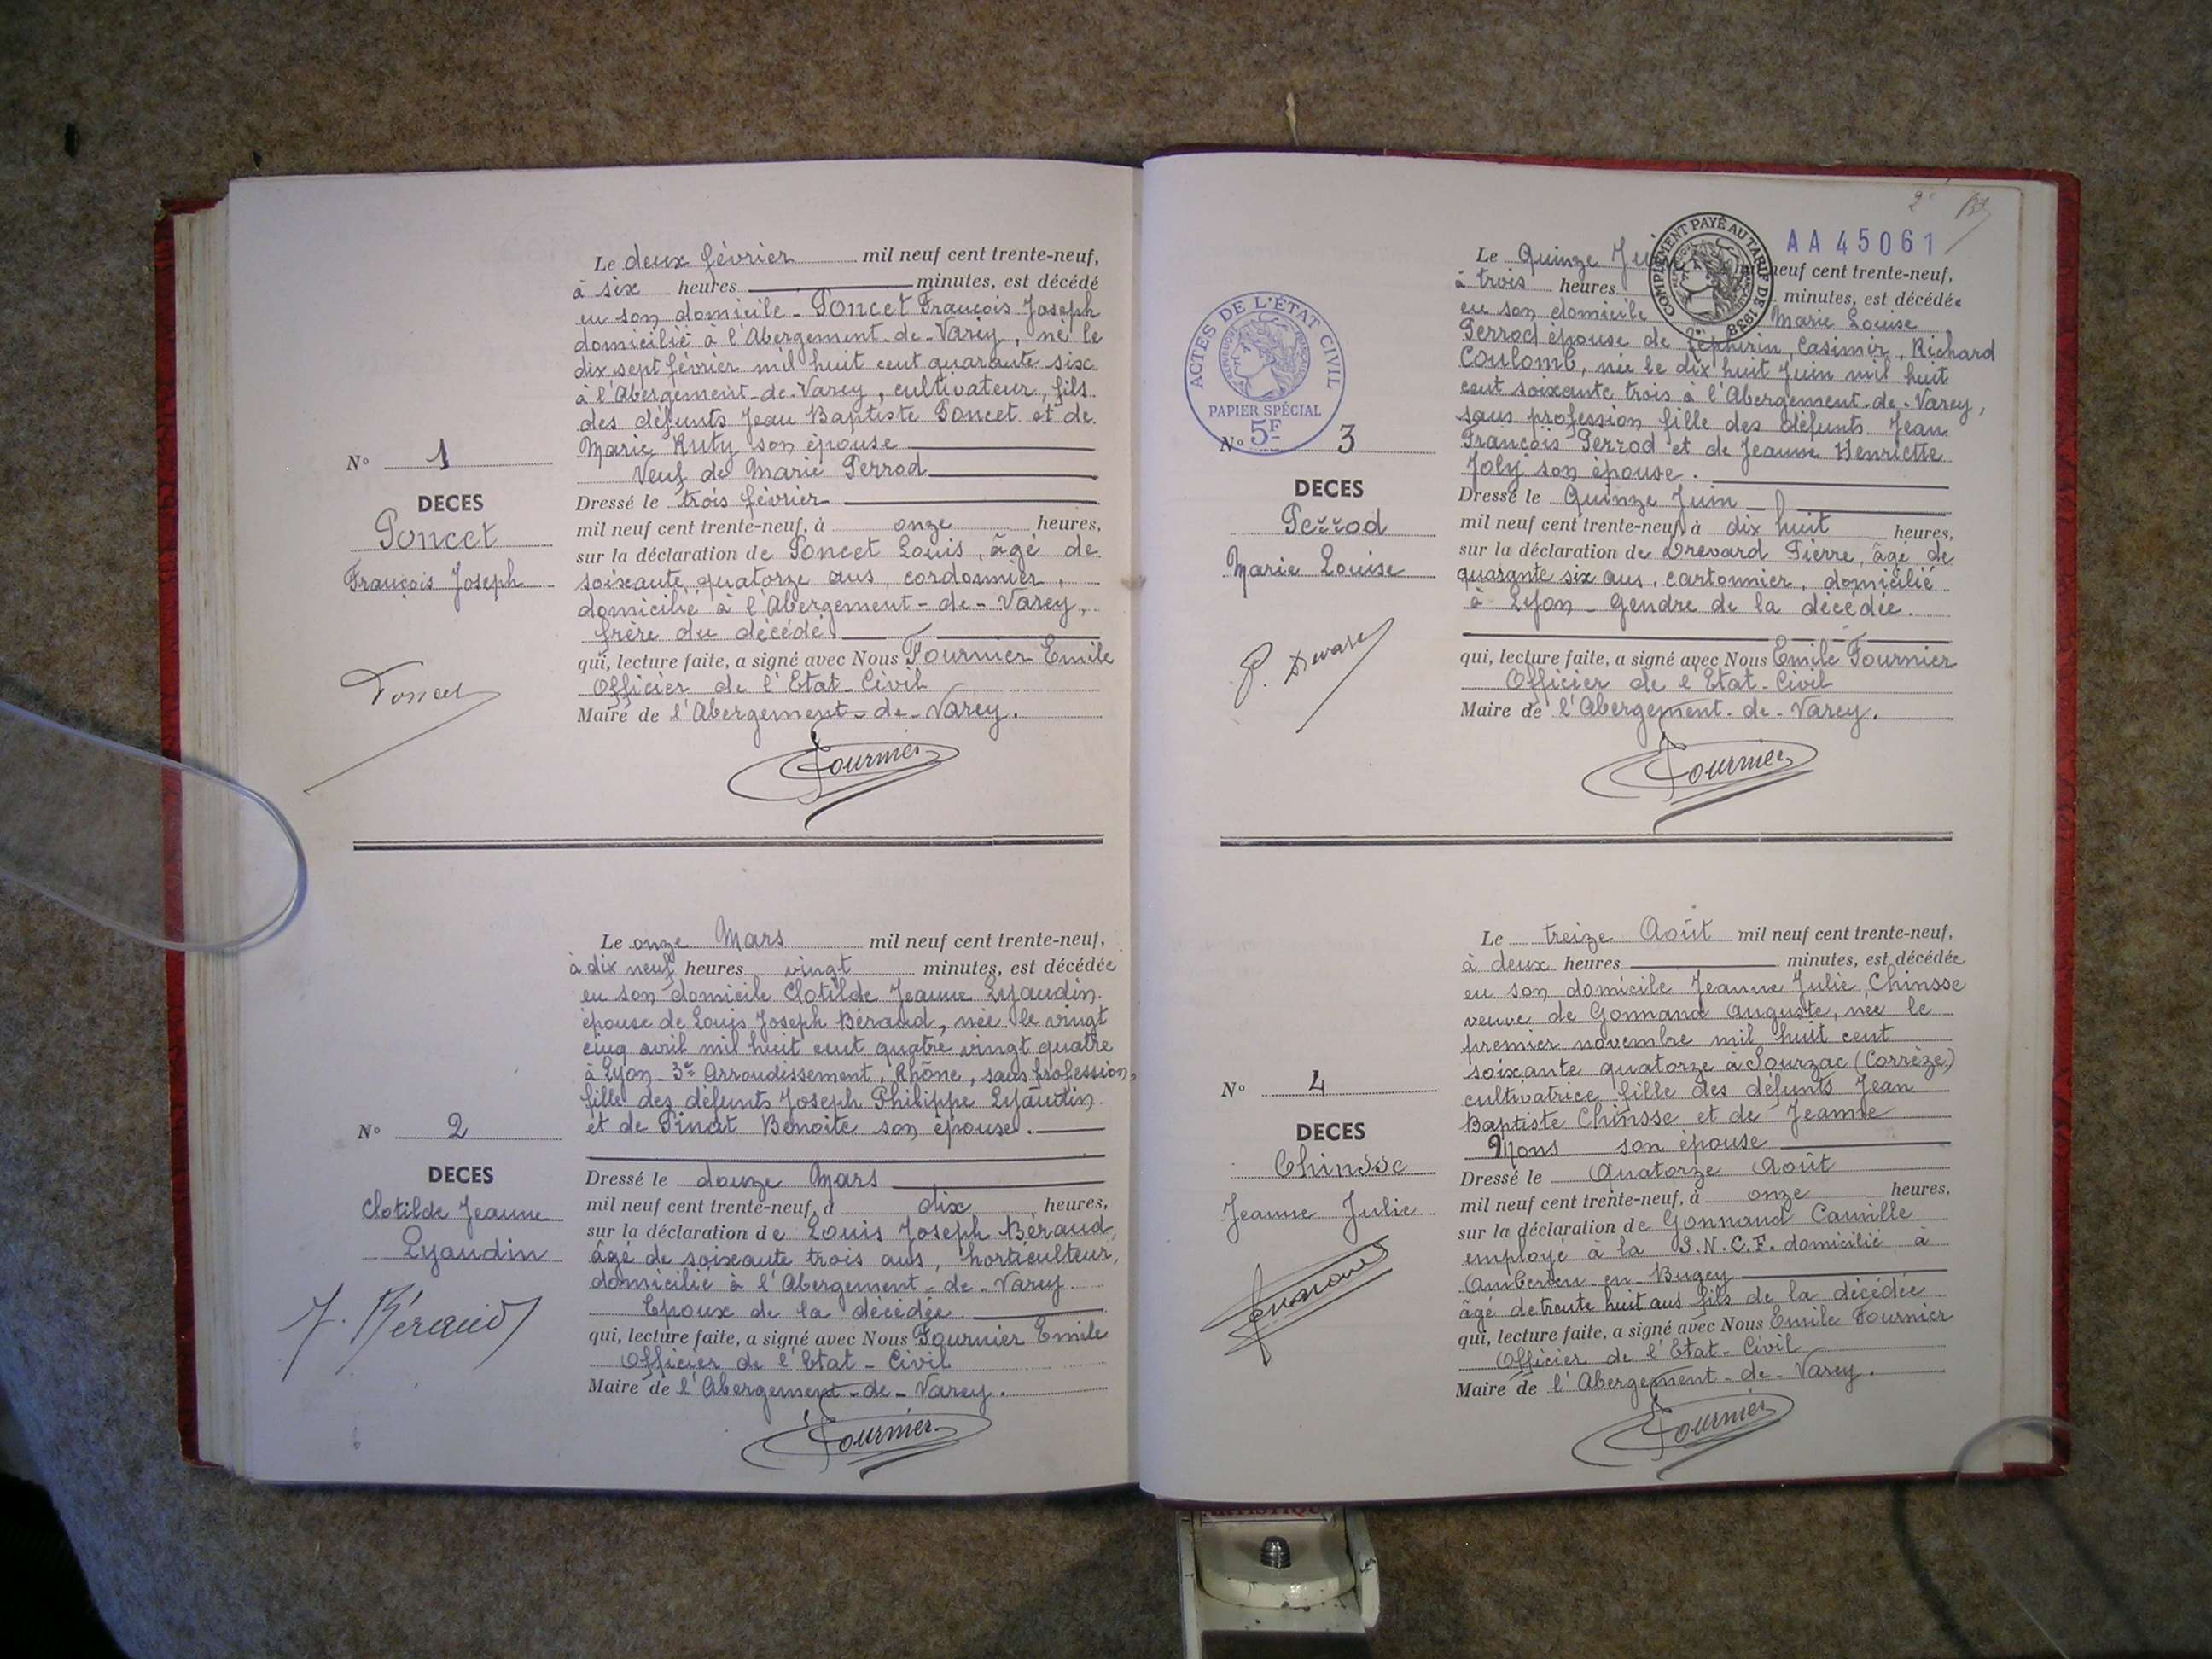 Le deux février mil neuf cent trente-neuf,
à six heures minutes, est décédé
en son domicile - Poncet François Joseph
domicilié à l'Abergement-de-Varey, né le
dix sept février mil huit cent quarante six
à l'Abergement-de-Varey, cultivateur, fils
des défunts Jean Baptiste Poncet et de
Marie Ruty son épouse
Veuf de Marie Perrod
N° 1
DECES
Poncet
François Joseph
Dressé le trois février
mil neuf cent trente-neuf, à onze heures,
sur la déclaration de Poncet Louis, âgé de
soixante quatorze ans, cordonnier,
domicilié à l'Abergement-de-Varey,
frère du décédé.
qui, lecture faite, a signé avec Nous Fournier Emile
Officier de l'Etat-Civil
Maire de l'Abergement-de-Varey.
Poncet
Fournier
Le onze Mars mil neuf cent trente-neuf,
à dix neuf heures vingt minutes, est décédée
en son domicile Clotilde Jeanne Lyaudin
épouse de Louis Joseph Béraud, née le vingt
cinq avril mil huit cent quatre vingt quatre
à Lyon 3e Arrondissement, Rhône, sans profession,
fille des défunts Joseph Philippe Lyaudin
et de Pinat Benoite son épouse.
N° 2
DECES
Clotilde Jeanne
Lyaudin
Dressé le douze Mars
mil neuf cent trente-neuf, à dix heures,
sur la déclaration de Louis Joseph Béraud,
âgé de soixante trois ans, horticulteur,
domicilié à l'Abergement-de-Varey
Epoux de la décédée.
qui, lecture faite, a signé avec Nous Fournier Emile
Officier de l'Etat-Civil
Maire de l'Abergement-de-Varey.
J. Béraud
Fournier
2e
AA 45061
COMPLÉMENT PAYÉ AU TARIF DE 1938
ACTES DE L'ÉTAT CIVIL
RÉPUBLIQUE FRANÇAISE
PAPIER SPÉCIAL
5F
Le Quinze Juin neuf cent trente-neuf,
à trois heures minutes, est décédée
en son domicile Marie Louise
Perrod épouse de Zéphirin, Casimir, Richard
Coulomb, née le dix huit Juin mil huit
cent soixante trois à l'Abergement-de-Varey,
sans profession fille des défunts Jean
François Perrod et de Jeanne Henriette
Joly son épouse.
N° 3
DECES
Perrod
Marie Louise
Dressé le Quinze Juin
mil neuf cent trente-neuf, à dix huit heures,
sur la déclaration de Drevard Pierre, âgé de
quarante six ans, cartonnier, domicilié
à Lyon - Gendre de la décédée.
qui, lecture faite, a signé avec Nous Emile Fournier
Officier de l'Etat-Civil
Maire de l'Abergement-de-Varey.
Fournier
Le treize Août mil neuf cent trente-neuf,
à deux heures minutes, est décédée
en son domicile Jeanne Julie Chinsse
veuve de Gonnand Auguste, née le
premier novembre mil huit cent
soixante quatorze à Sourzac (Corrèze)
cultivatrice fille des défunts Jean
Baptiste Chinsse et de Jeanne
Mons son épouse
N° 4
DECES
Chinsse
Jeanne Julie
Dressé le Quatorze Août
mil neuf cent trente-neuf, à onze heures,
sur la déclaration de Gonnand Camille
employé à la S.N.C.F. domicilié à
Ambérieu-en-Bugey
âgé de trente huit ans fils de la décédée
qui, lecture faite, a signé avec Nous Emile Fournier
Officier de l'Etat-Civil
Maire de l'Abergement-de-Varey.
Fournier